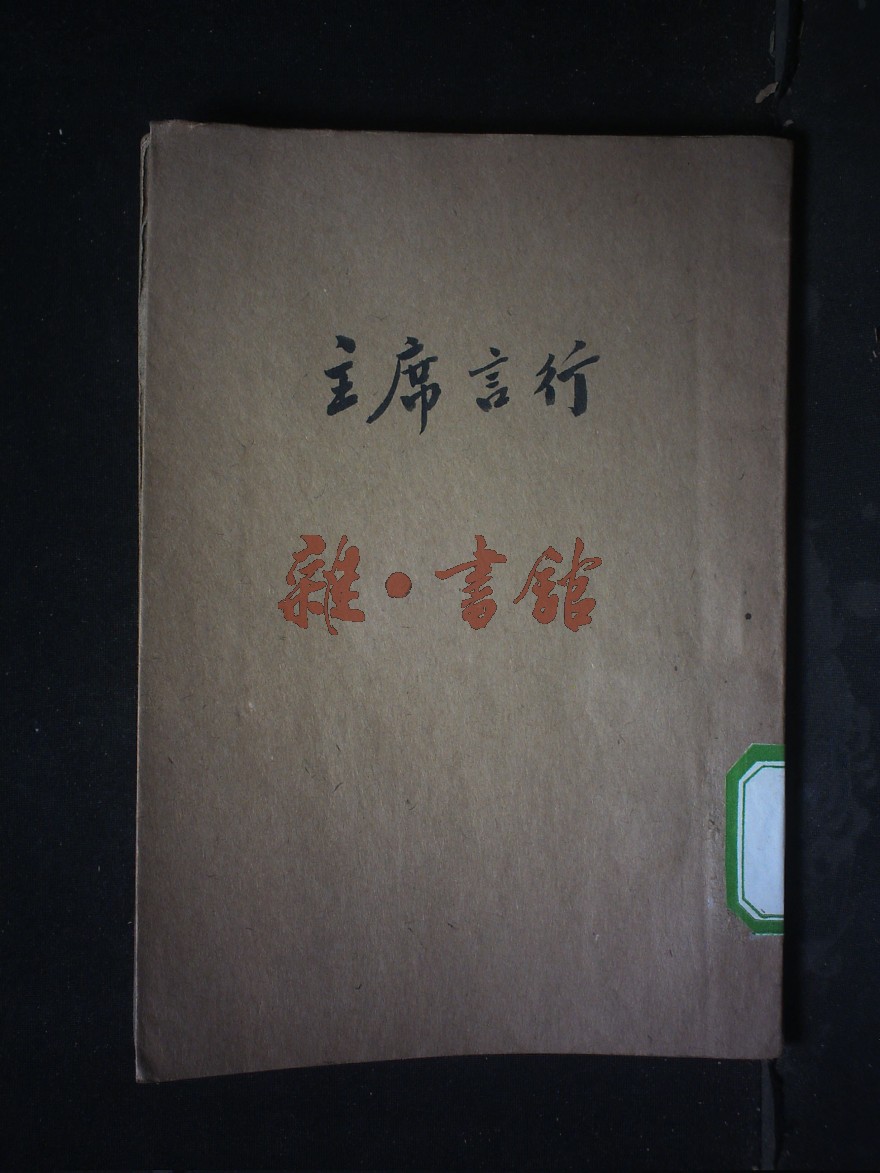 主席言行
雜·書館